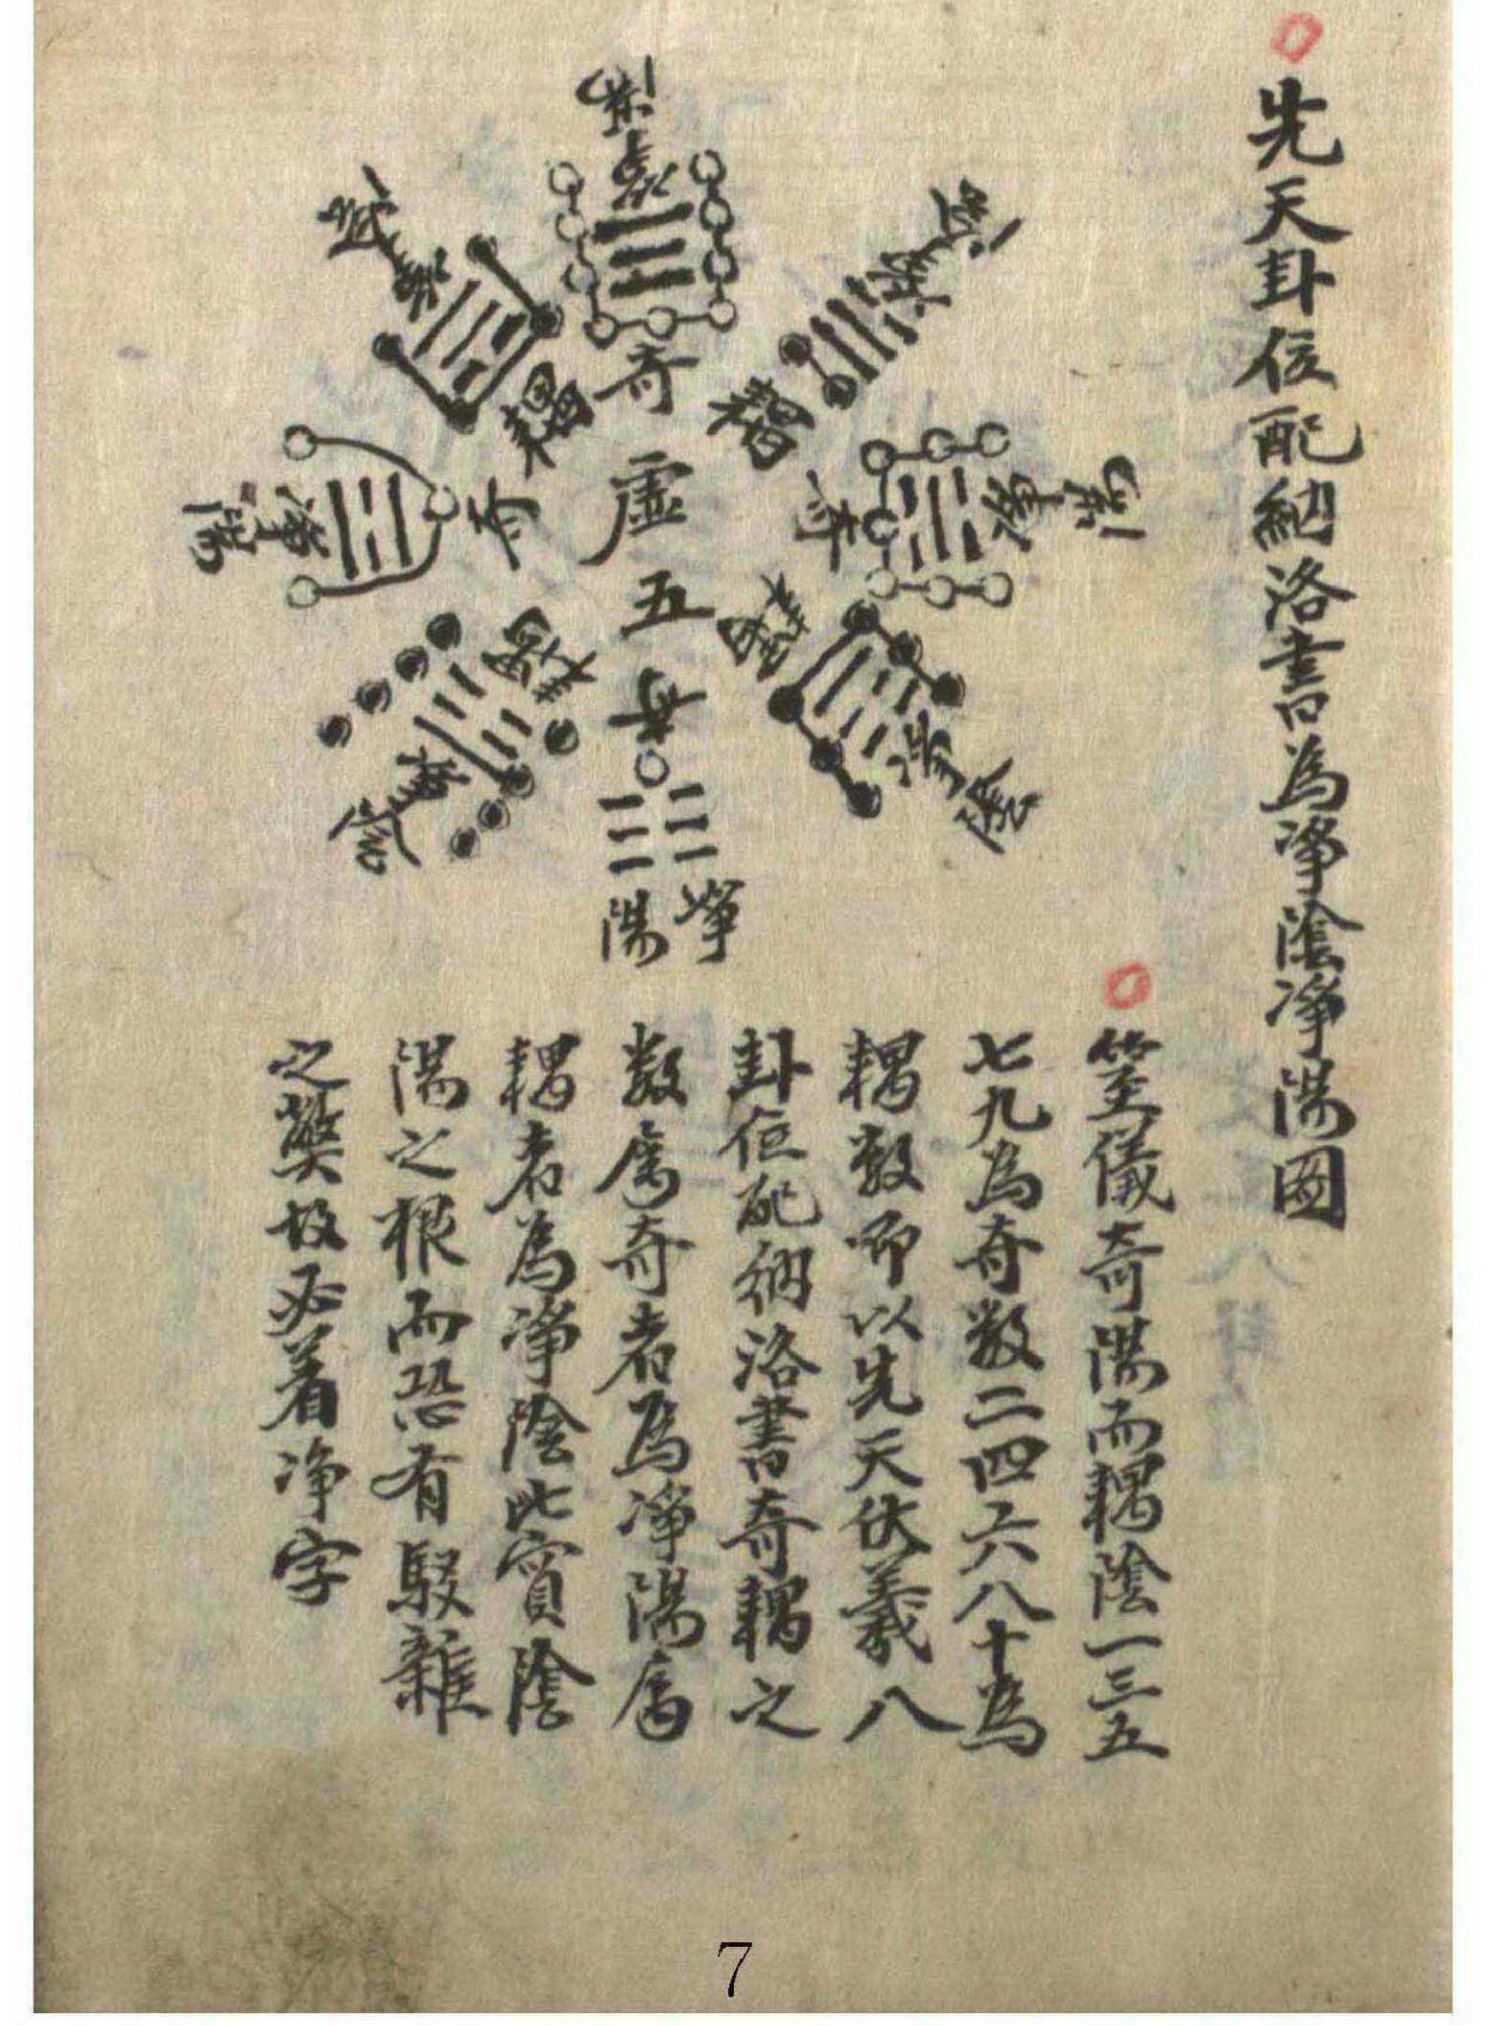 先天卦位配納洛書為淨陰淨陽圖
淨陽
奇
淨陰
耦
淨陽
奇
淨陰
耦
虛五
奇
淨陽
耦
淨陰
奇
淨陽
耦
淨陰
儀奇陽而耦陰一三五
七九為奇數二四六八十為
耦數而以先天伏羲八
卦位配納洛書奇耦之
數居奇者為淨陽居
耦者為淨陰此實陰
陽之根而恐有駁雜
之獘故必着淨字
7